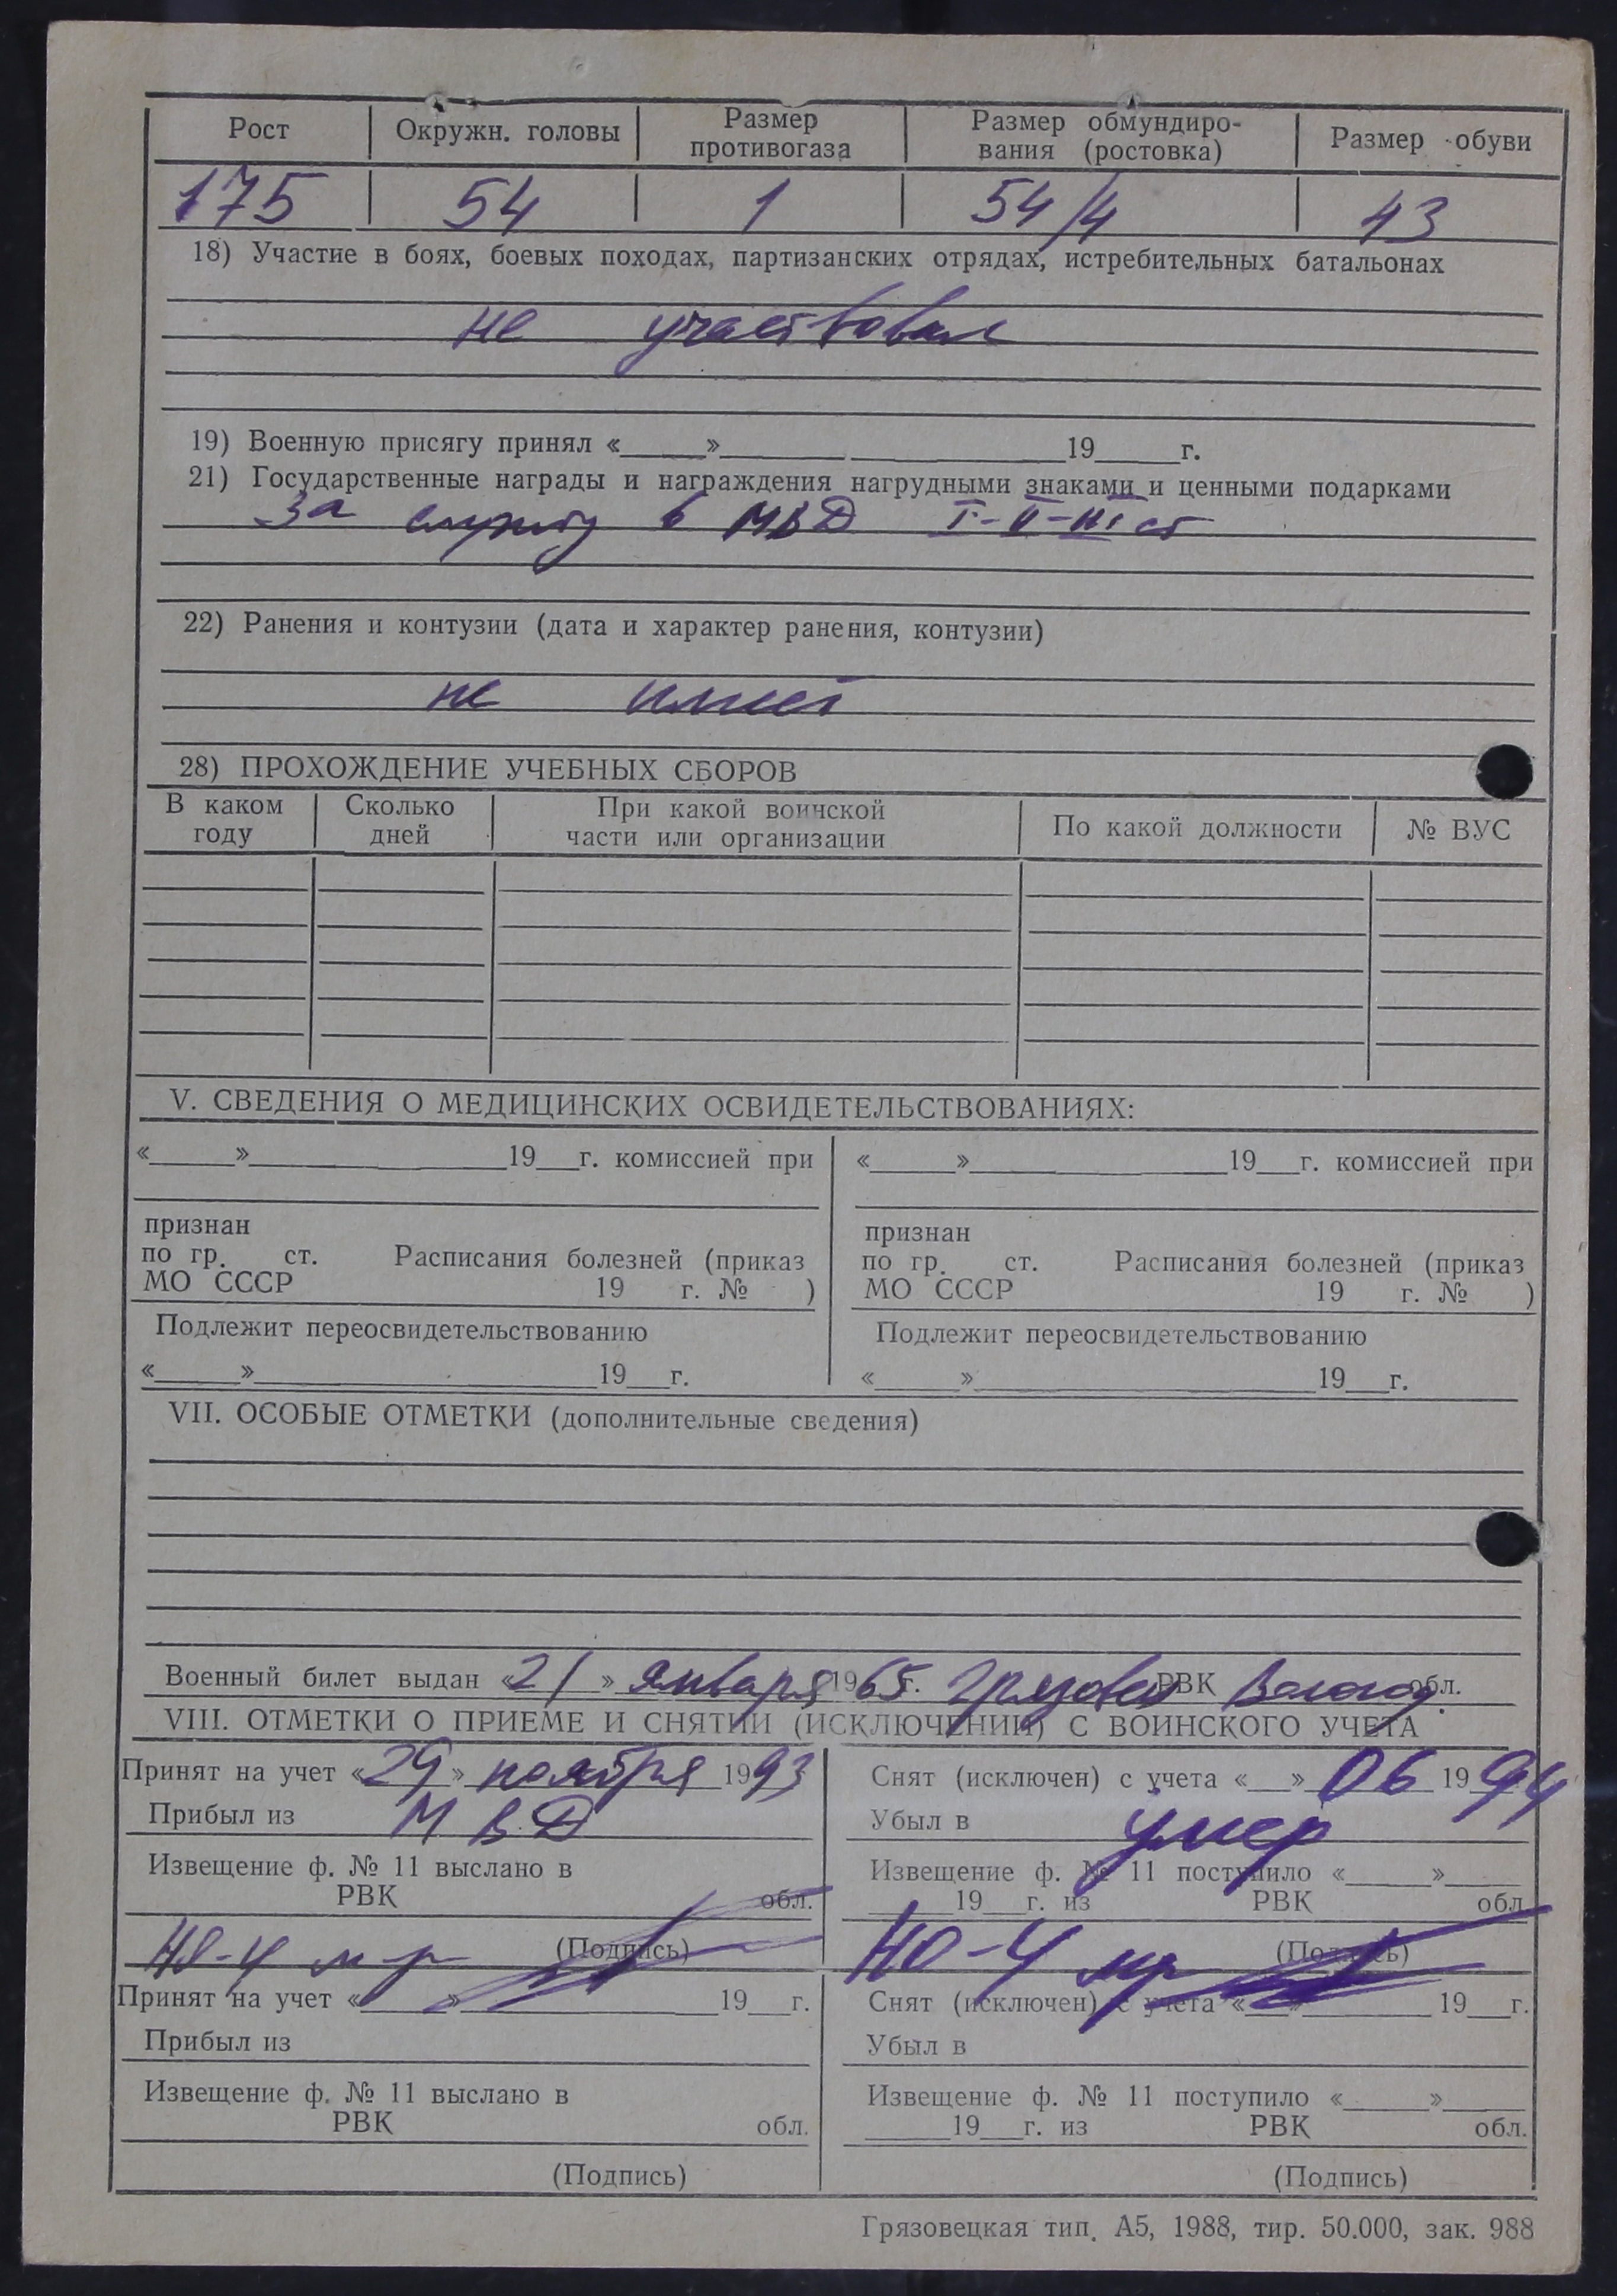 Рост Окружн. головы Размер противогаза Размер обмундиро- вания (ростовка) Размер обуви
175 54 1 54/4 43
18) Участие в боях, боевых походах, партизанских отрядах, истребительных батальонах
не участвовал
19) Военную присягу принял «____»____ 19____г.
21) Государственные награды и награждения нагрудными знаками и ценными подарками
За службу в МВД I-II-III ст
22) Ранения и контузии (дата и характер ранения, контузии)
не имеет
28) ПРОХОЖДЕНИЕ УЧЕБНЫХ СБОРОВ
В каком году Сколько дней При какой воинской части или организации По какой должности № ВУС
V. СВЕДЕНИЯ О МЕДИЦИНСКИХ ОСВИДЕТЕЛЬСТВОВАНИЯХ:
«____»____19__г. комиссией при «____»____19__г. комиссией при
признан признан
по гр. ст. Расписания болезней (приказ по гр. ст. Расписания болезней (приказ
МО СССР 19 г. № ) МО СССР 19 г. № )
Подлежит переосвидетельствованию Подлежит переосвидетельствованию
«____»____19__г. «____»____19__г.
VII. ОСОБЫЕ ОТМЕТКИ (дополнительные сведения)
Военный билет выдан «21» января 1965 г. Грязовец РВК Волог. обл.
VIII. ОТМЕТКИ О ПРИЕМЕ И СНЯТИИ (ИСКЛЮЧЕНИИ) С ВОИНСКОГО УЧЕТА
Принят на учет «29» ноября 1993 Снят (исключен) с учета «__» 06 1994
Прибыл из МВД Убыл в умер
Извещение ф. № 11 выслано в Извещение ф. № 11 поступило «____»____
РВК обл. ____19__г. из РВК обл.
НО-4 м-р (Подпись) НО-4 м-р (Подпись)
Принят на учет «____»____19__г. Снят (исключен) с учета «__»____19__г.
Прибыл из Убыл в
Извещение ф. № 11 выслано в Извещение ф. № 11 поступило «____»____
РВК обл. ____19__г. из РВК обл.
(Подпись) (Подпись)
Грязовецкая тип. А5, 1988, тир. 50.000, зак. 988